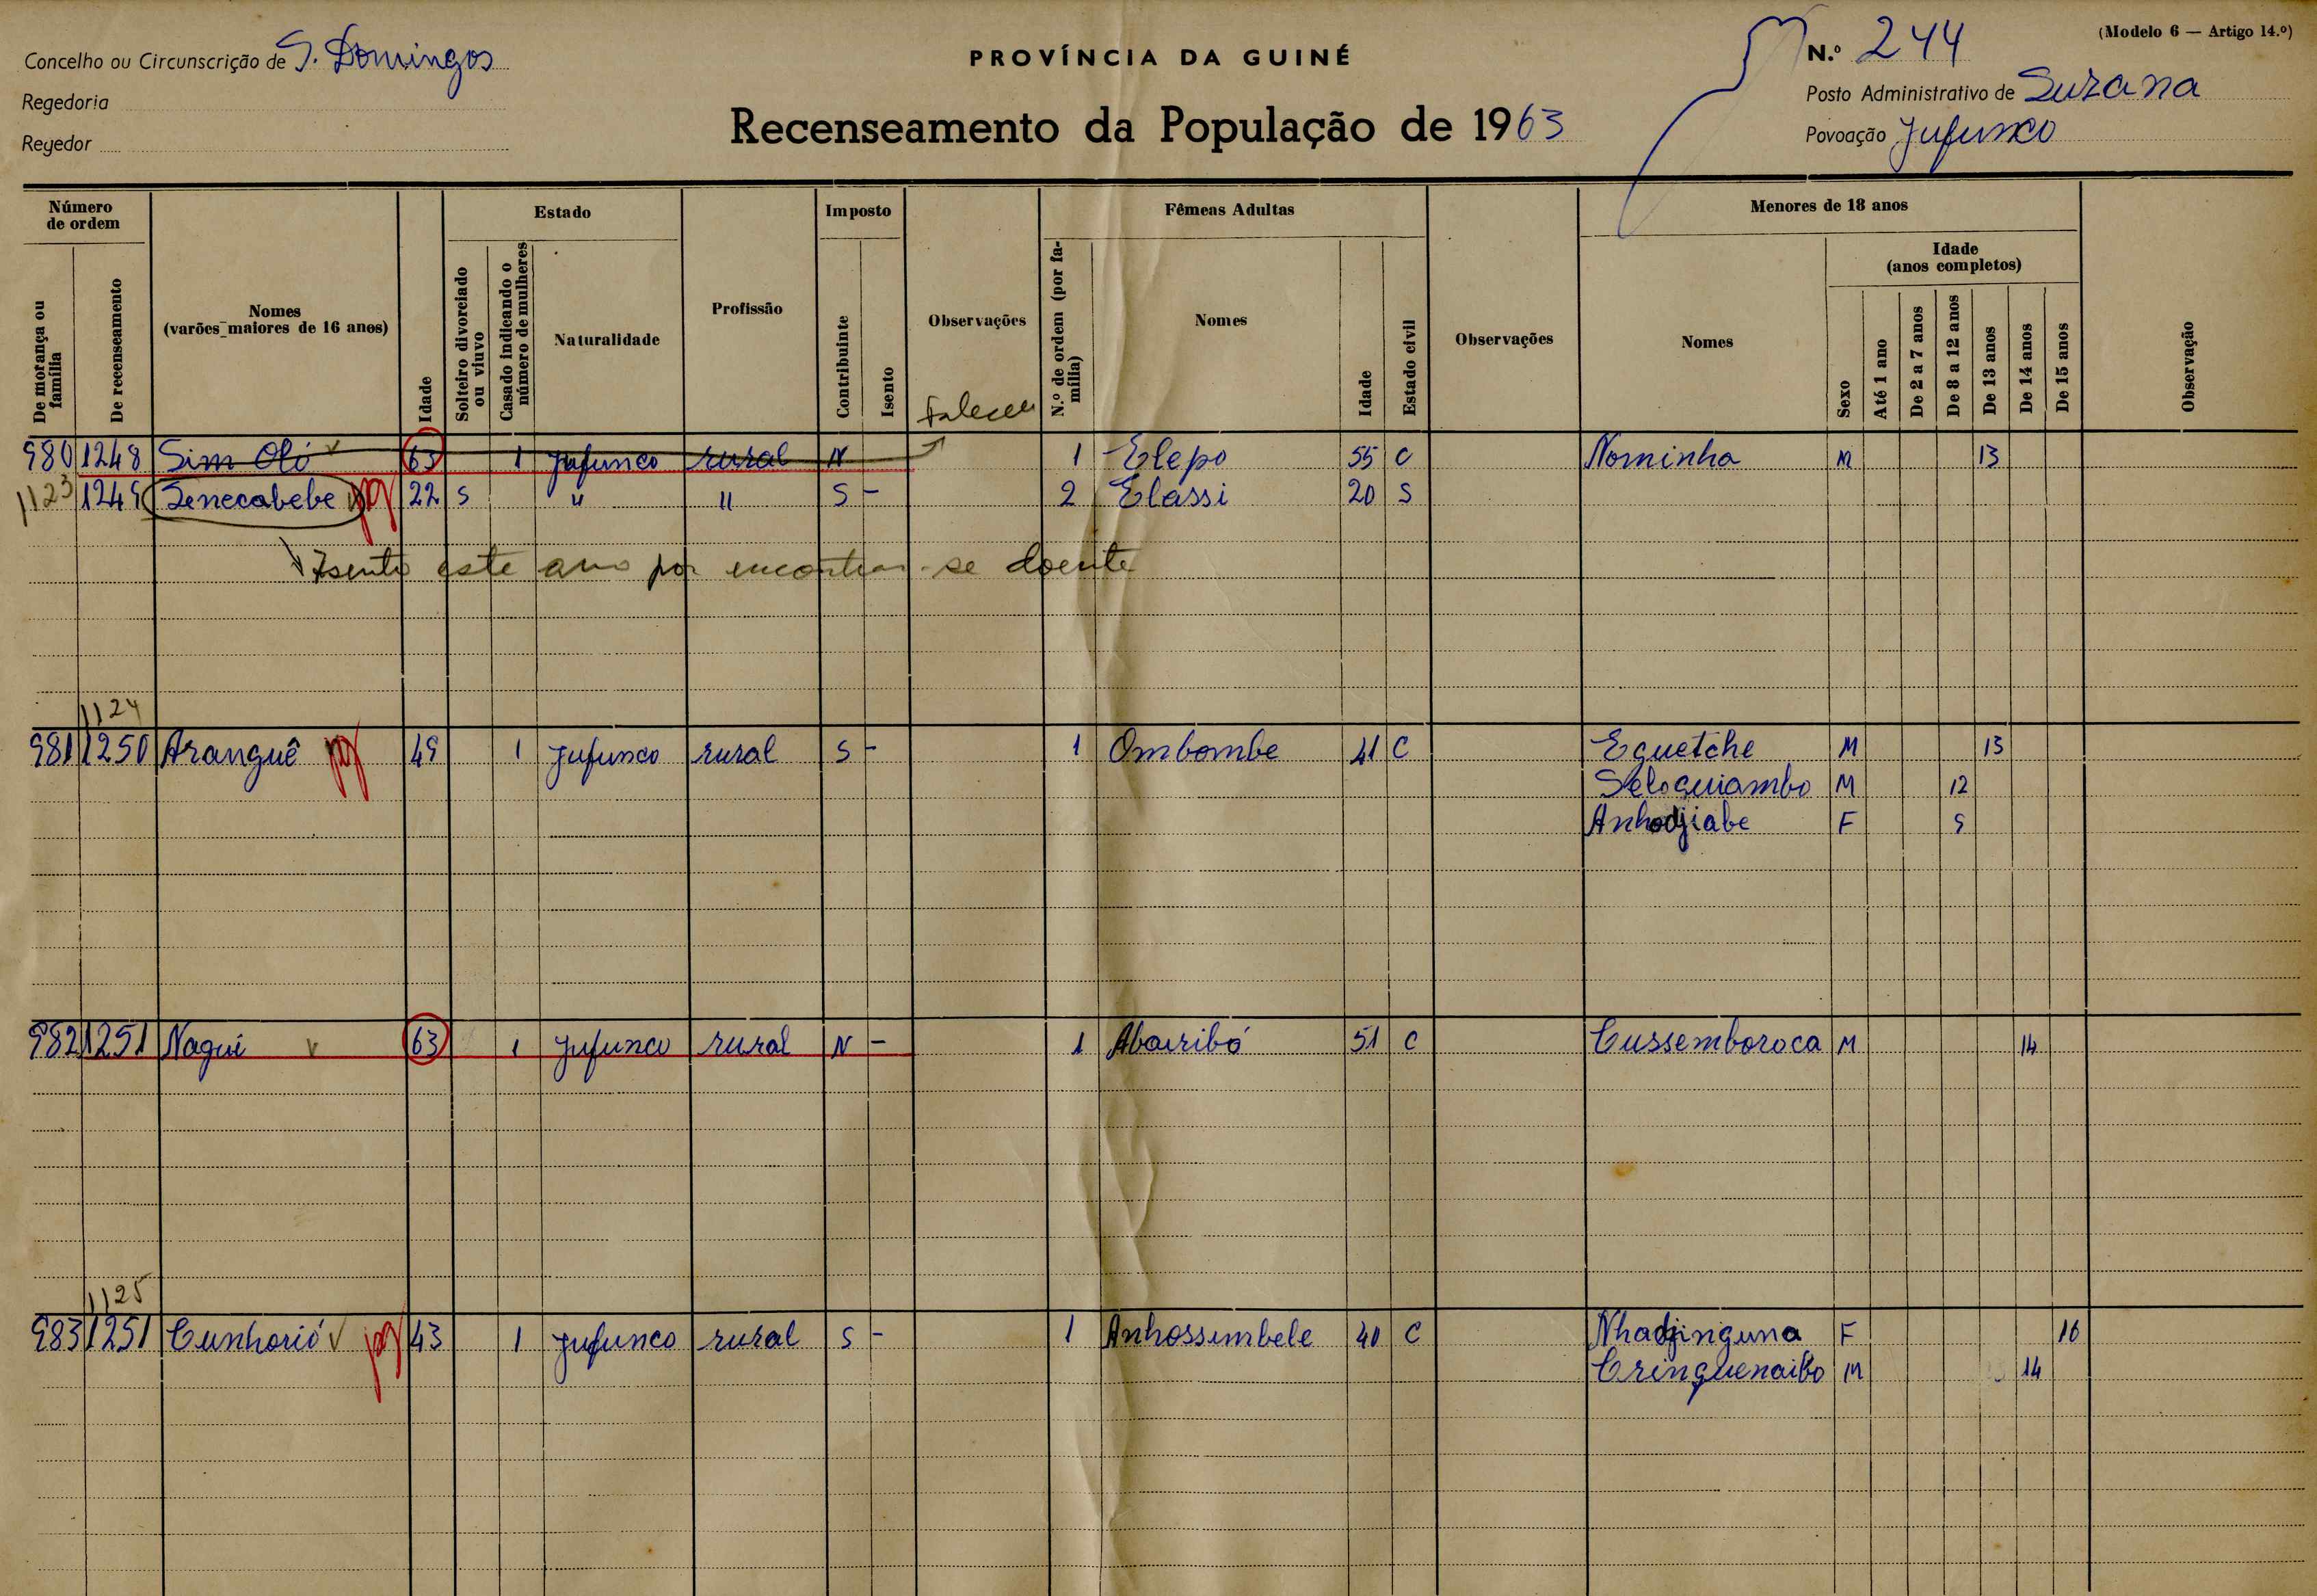 (Modelo 6 — Artigo 14.º)
Concelho ou Circunscrição de S. Domingos
PROVÍNCIA DA GUINÉ
N.º 244
Regedoria
Posto Administrativo de Suzana
Regedor
Recenseamento da População de 1963
Povoação Jufunco
Número de ordem
Estado
Imposto
Fêmeas Adultas
Menores de 18 anos
Idade (anos completos)
De morança ou família
De recenseamento
Nomes (varões maiores de 16 anos)
Idade
Solteiro divorciado ou viuvo
Casado indicando o número de mulheres
Naturalidade
Profissão
Contribuinte
Isento
Observações
N.º de ordem (por família)
Nomes
Idade
Estado civil
Observações
Nomes
Sexo
Até 1 ano
De 2 a 7 anos
De 8 a 12 anos
De 13 anos
De 14 anos
De 15 anos
Observação
Faleceu
980 1248 Sim Oló 63 1 Jufunco rural N 1 Elepo 55 C Nominha M 13
1123 1249 Senecabebe pg 22 S " " S - 2 Elassi 20 S
Isento este ano por encontrar-se doente
1124
981 1250 Aranguê pg 49 1 Jufunco rural S - 1 Ombombe 41 C Eguetche M 13
Seloguiambo M 12
Anhodjiabe F 9
982 1251 Nagui 63 1 Jufunco rural N - 1 Abairibó 51 C Cussemboroca M 14
1125
983 1251 Cunhorió pg 43 1 Jufunco rural S - 1 Anhossimbele 40 C Nhadjinguna F 16
Cringuenaibo M 14